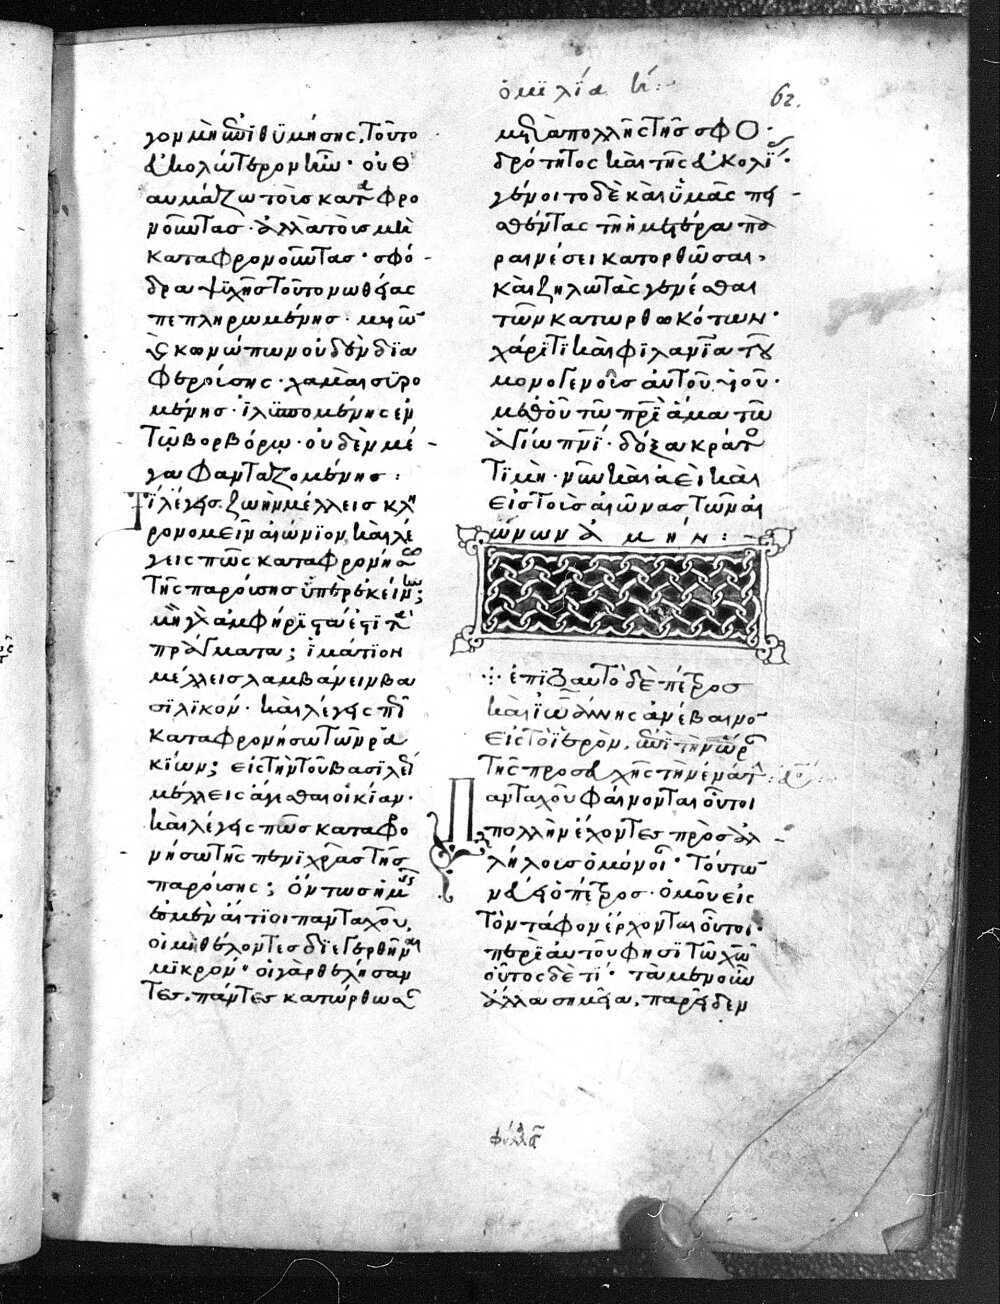 ὁμιλία η:
62.
γον μὴ ἐπιθυμήσῃς, τοῦτο
δυσκολώτερον ἦν· οὐ θ
αυμάζω τοὺς καταφρο
νοῦντας· ἀλλὰ τοὺς μὴ
καταφρονοῦντας· σφό
δρα ψυχῆς τοῦτο νωθείας
πεπληρωμένης· μυιῶν
καὶ κωνώπων οὐδὲν δια
φερούσης· χαμαὶ συρο
μένης· ἰλυσπωμένης ἐν
τῷ βορβόρῳ· οὐδὲν μέ
γα φανταζομένης:
Τί λέγεις ζωὴν μέλλεις κλη
ρονομεῖν αἰώνιον καὶ λέ
γεις πῶς καταφρονήσω
τῆς παρούσης ὑπὲρ ἐκείνης;
μὴ γὰρ ἀμφήριστά ἐστι τὰ
πράγματα; ἱμάτιον
μέλλεις λαμβάνειν βα
σιλικόν· καὶ λέγεις πῶς
καταφρονήσω τῶν ῥα
κίων; εἰς τὴν τοῦ βασιλέως
μέλλεις ἄγεσθαι οἰκίαν·
καὶ λέγεις πῶς καταφρο
νήσω τῆς πενιχρᾶς τῆς
παρούσης; ὄντως ἡμεῖς
ἐσμὲν αἴτιοι πανταχοῦ,
οἱ μὴ θέλοντες διεγερθῆναι
μικρόν· οἱ γὰρ θελήσαν
τες, πάντες κατώρθωσαν
μετὰ πολλῆς τῆς σφο
δρότητος καὶ τῆς εὐκολίας·
γένοιτο δὲ καὶ ὑμᾶς πει
σθέντας τῇ ἡμετέρᾳ πα
ραινέσει κατορθῶσαι,
καὶ ζηλωτὰς γενέσθαι
τῶν κατωρθωκότων·
χάριτι καὶ φιλανθρωπίᾳ τοῦ
μονογενοῦς αὐτοῦ υἱοῦ·
μεθ' οὗ τῷ πρὶ ἅμα τῷ
ἁγίῳ πνι· δόξα κράτος
τιμὴ· νῦν καὶ ἀεὶ καὶ
εἰς τοὺς αἰῶνας τῶν αἰ
ώνων ἀμήν:
ἐπὶ τὸ αυτὸ δὲ πέτρος
καὶ ἰωάννης ἀνέβαινον
εἰς τὸ ἱερὸν, ἐπὶ τὴν ὥραν
τῆς προσευχῆς τὴν ἐνάτην:
Πανταχοῦ φαίνονται οὗτοι
πολλὴν ἔχοντες πρὸς ἀλ
λήλους ὁμόνοιαν· τούτω
νεύει ὁ πέτρος· ὁμοῦ εἰς
τὸν τάφον ἔρχονται οὗτοι·
περὶ αὐτοῦ φησὶ τῷ χῷ
οὗτος δὲ τί· τὰ μὲν οὖν
ἄλλα σημεῖα, παρεῖδεν